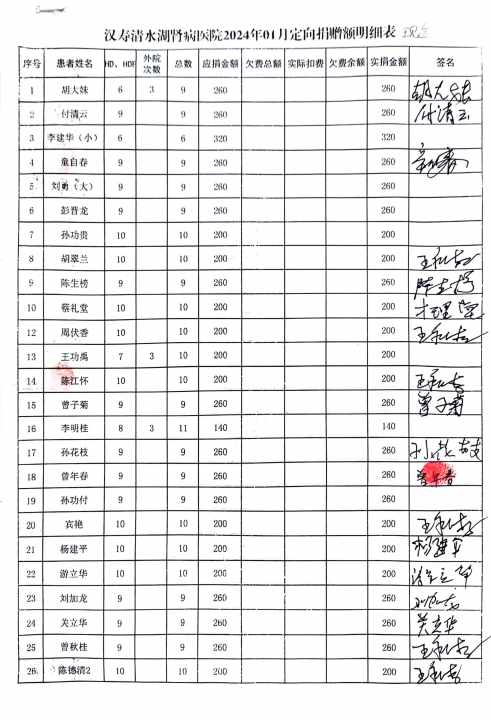 汉寿清水湖肾病医院2024年01月定向捐赠额明细表
序号 患者姓名 HD、HDF 外院次数 总数 应捐金额 欠费总额 实际扣费 欠费余额 实捐金额 签名
1 胡大妹 6 3 9 260 260 胡大妹
2 付清云 9 9 260 260 付清云
3 李建华（小） 6 6 320 320
4 童自春 9 9 260 260
5 刘勇（大） 9 9 260 260
6 彭晋龙 9 9 260 260
7 孙功贵 10 10 200 200
8 胡翠兰 10 10 200 200
9 陈生榜 9 9 260 260 陈生榜
10 蔡礼堂 10 10 200 200
12 周伏香 10 10 200 200
13 王功禹 7 3 10 200 200
14 陈江怀 10 10 200 200
15 曾子菊 9 9 260 260 曾子菊
16 李明桂 8 3 11 140 140
17 孙花枝 9 9 260 260
18 曾年春 9 9 260 260 曾年春
19 孙功付 9 9 260 260
20 宾艳 10 10 200 200
21 杨建平 10 10 200 200 杨建平
22 游立华 10 10 200 200 游立华
23 刘加龙 9 9 260 260
24 关立华 9 9 260 260 关立华
25 曾秋桂 9 9 260 260
26 陈德清2 10 10 200 200